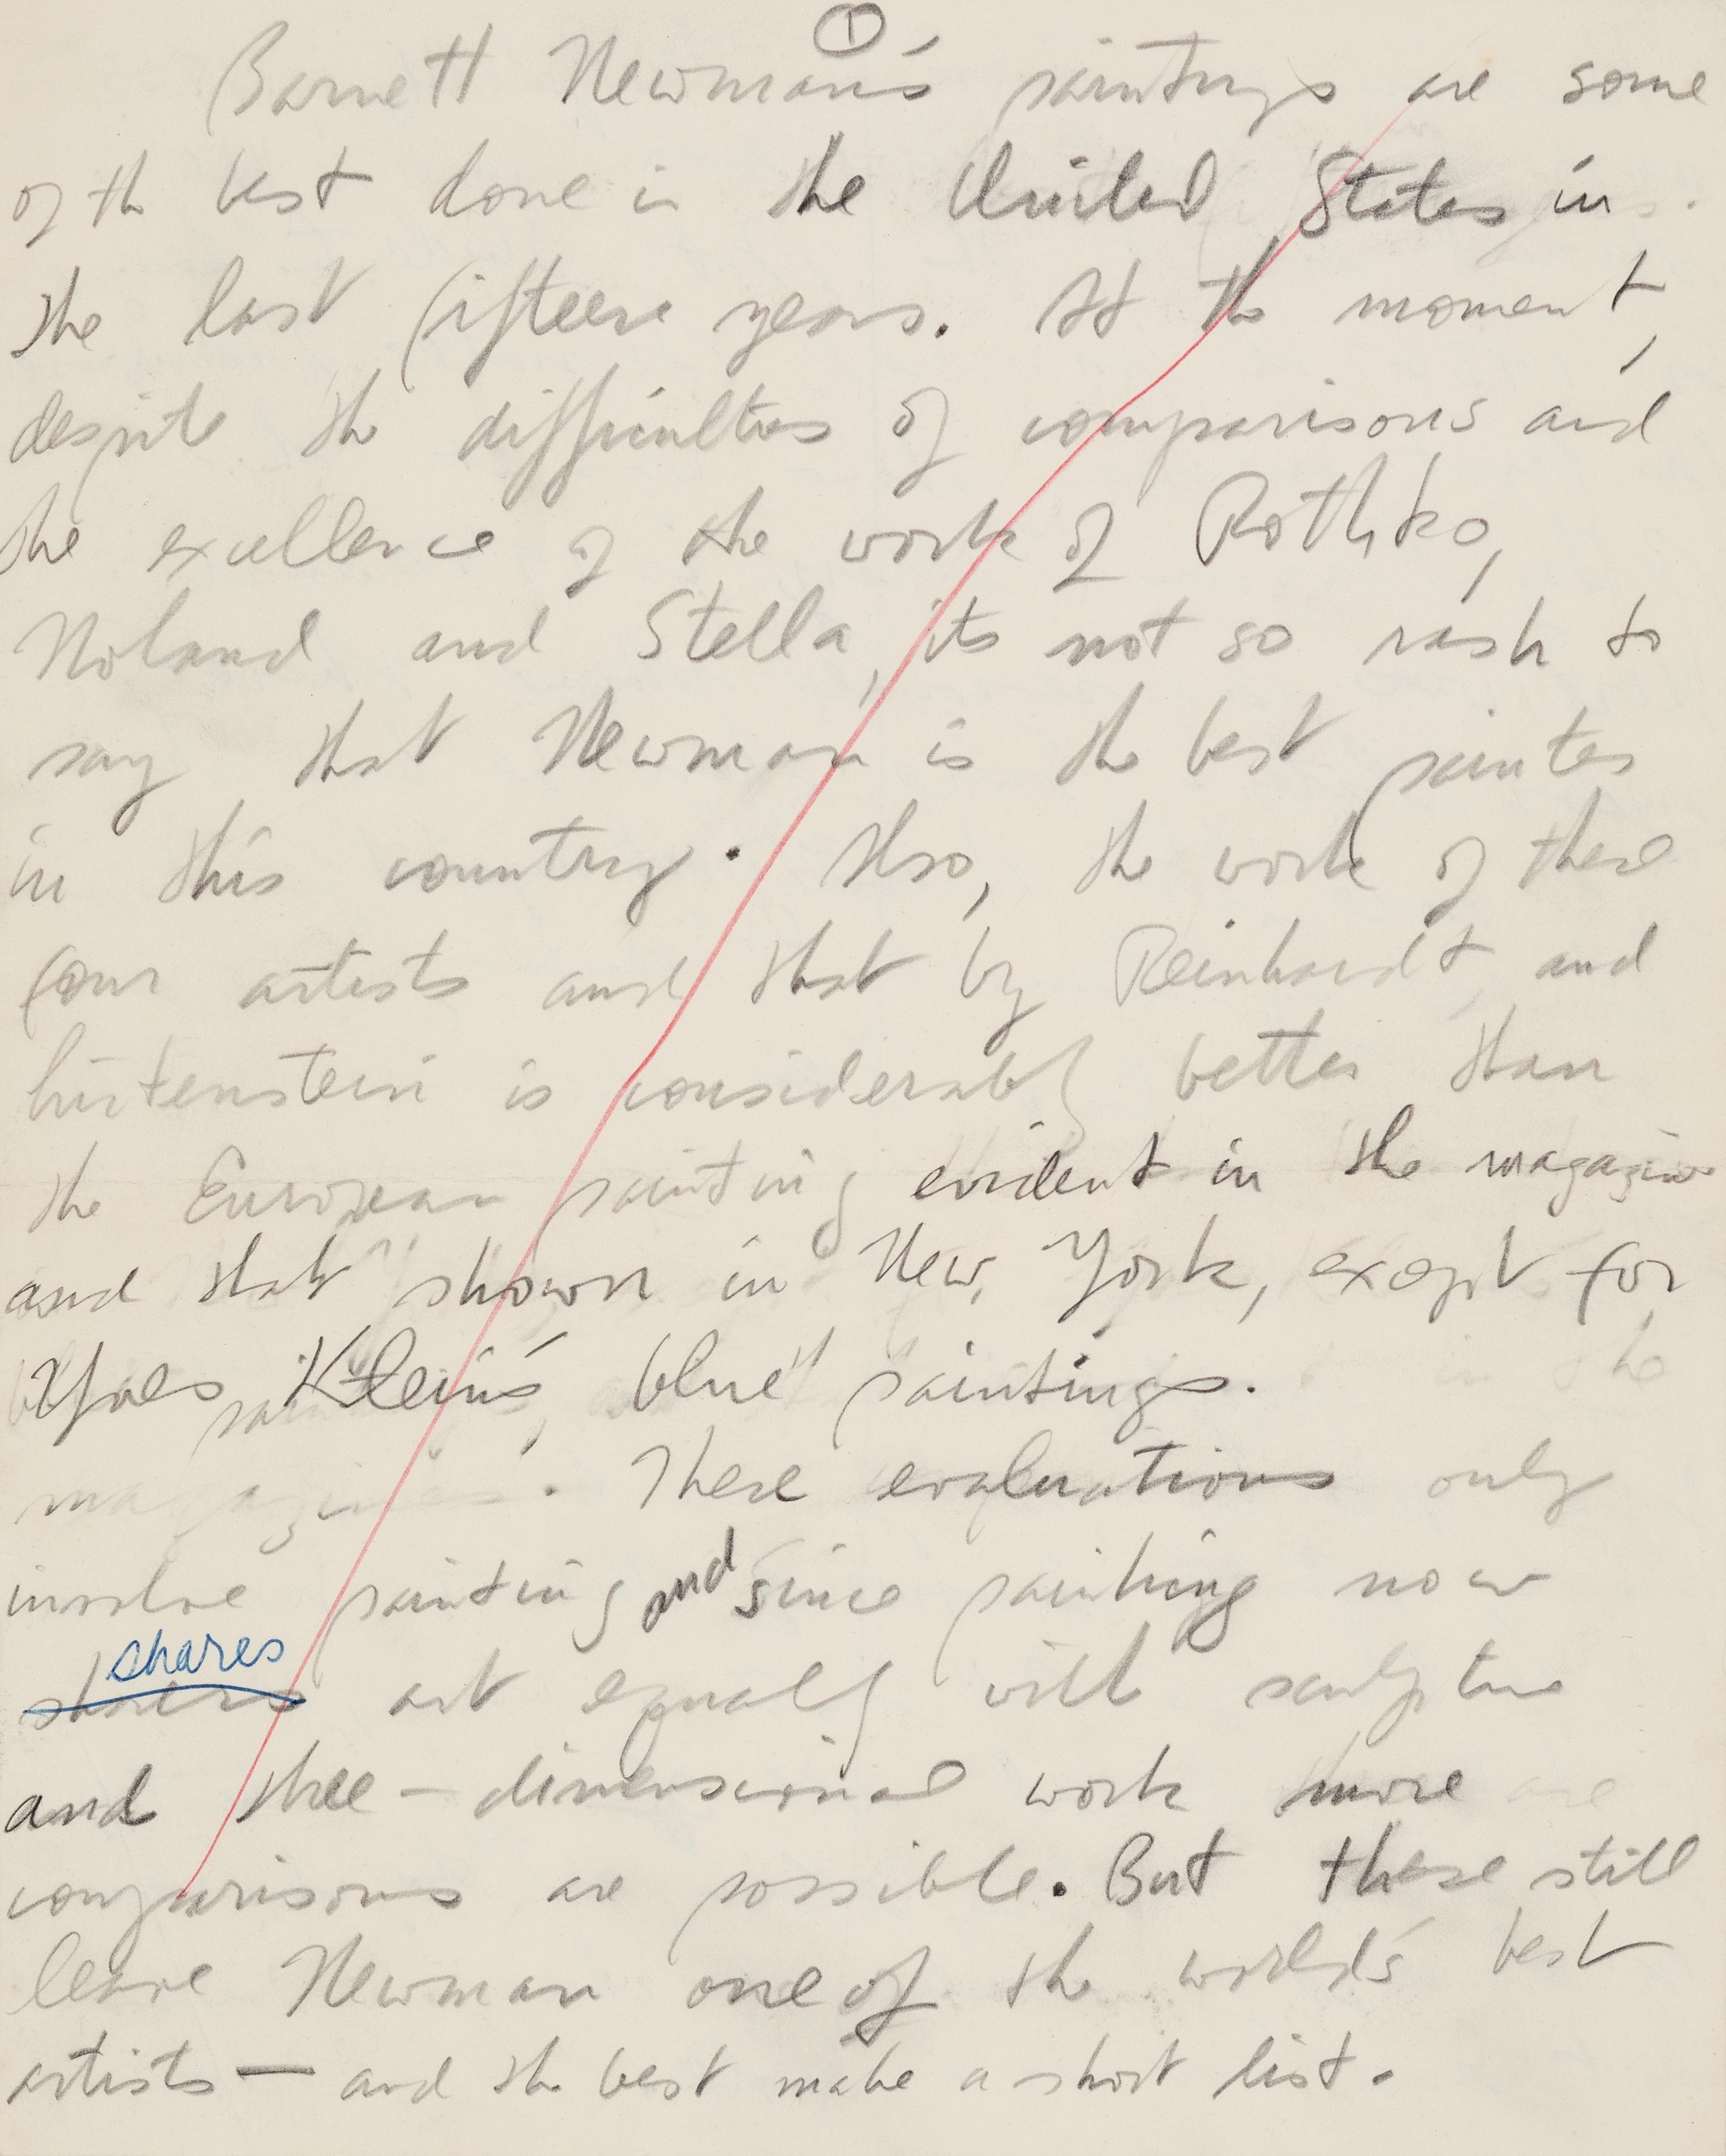 ①
Barnett Newman's paintings are some
of the best done in the United States in
the last fifteen years. At the moment,
despite the difficulties of comparisons and
the excellence of the work of Rothko,
Noland and Stella, its not so rash to
say that Newman is the best painter
in this country. Also, the work of these
four artists and that by Reinhardt and
Lichtenstein is considerably better than
the European painting evident in the magazines
and that shown in New York, except for
Yves Klein's blue paintings.
These evaluations only
involve painting and since painting now
shares
shares art equally with sculpture
and three-dimensional work more
comparisons are possible. But these still
leave Newman one of the world's best
artists — and the best make a short list.